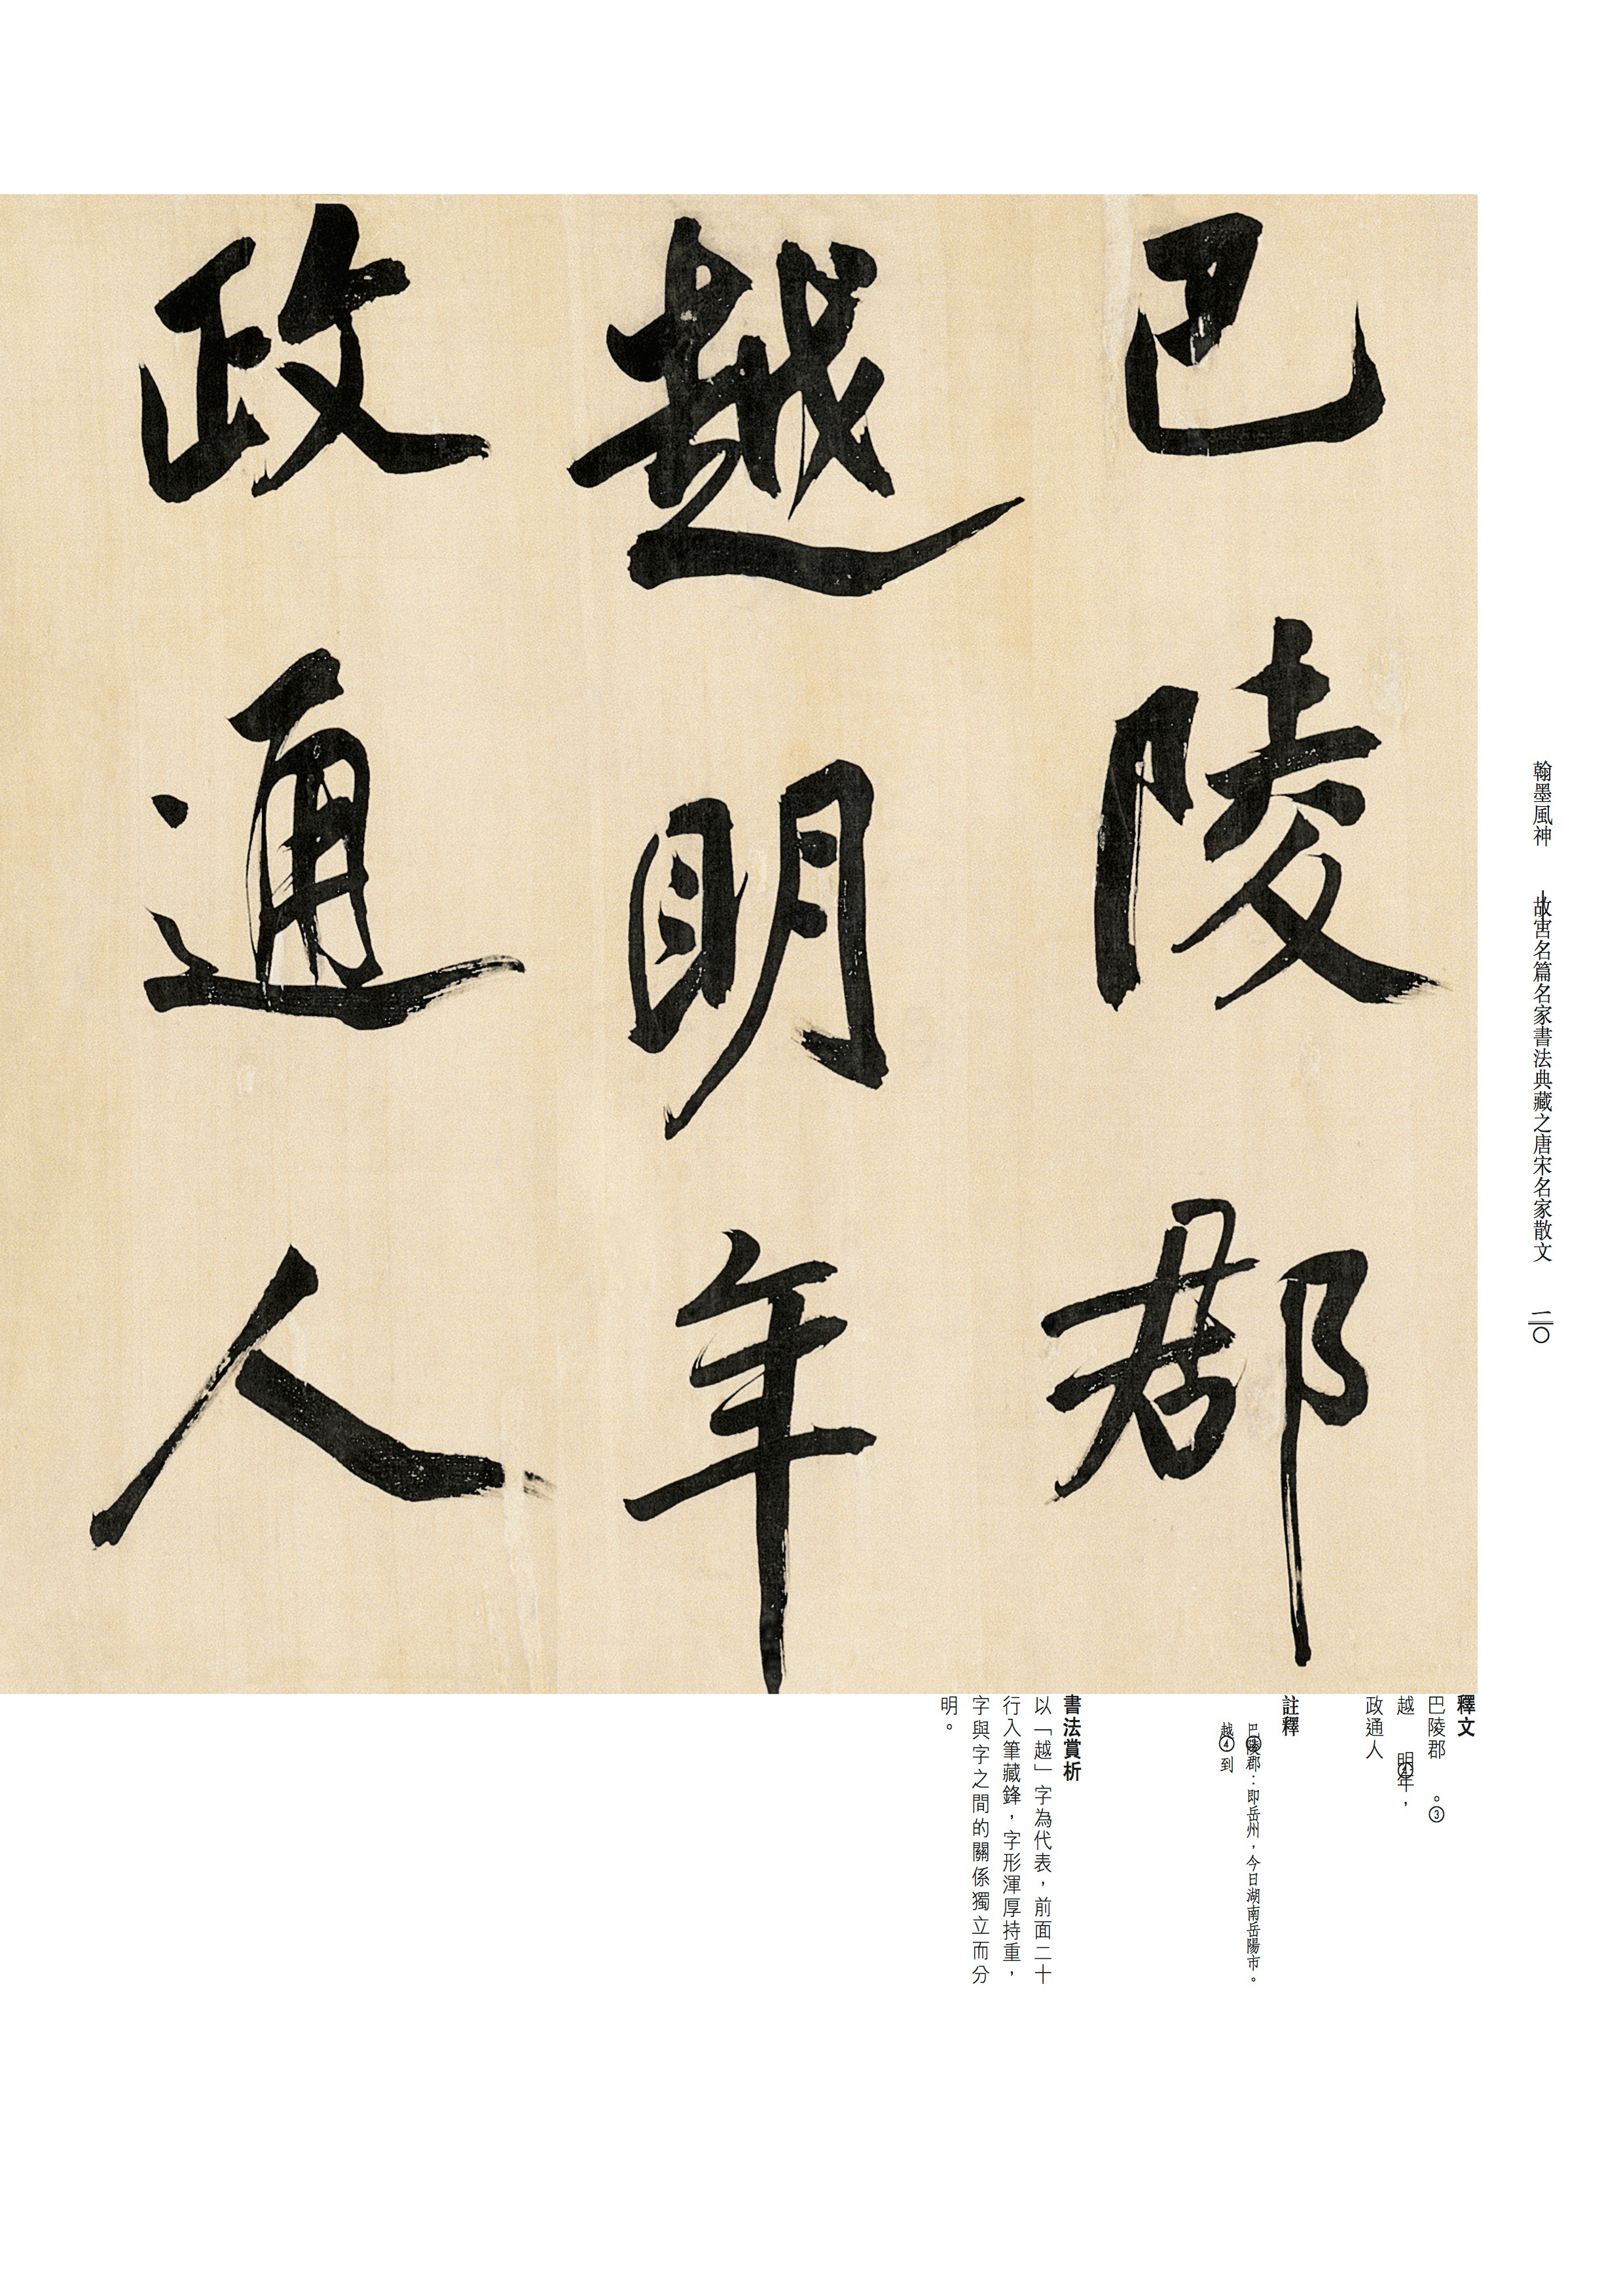 巴陵郡
越明年
政通人
翰墨風神 故宮名篇名家書法典藏之唐宋名家散文
一〇
釋文
巴陵郡③。
越④明年，
政通人
註釋
③巴陵郡：即岳州，今日湖南岳陽市。
④越 到
書法賞析
以「越」字為代表，前面二十
行入筆藏鋒，字形渾厚持重，
字與字之間的關係獨立而分
明。